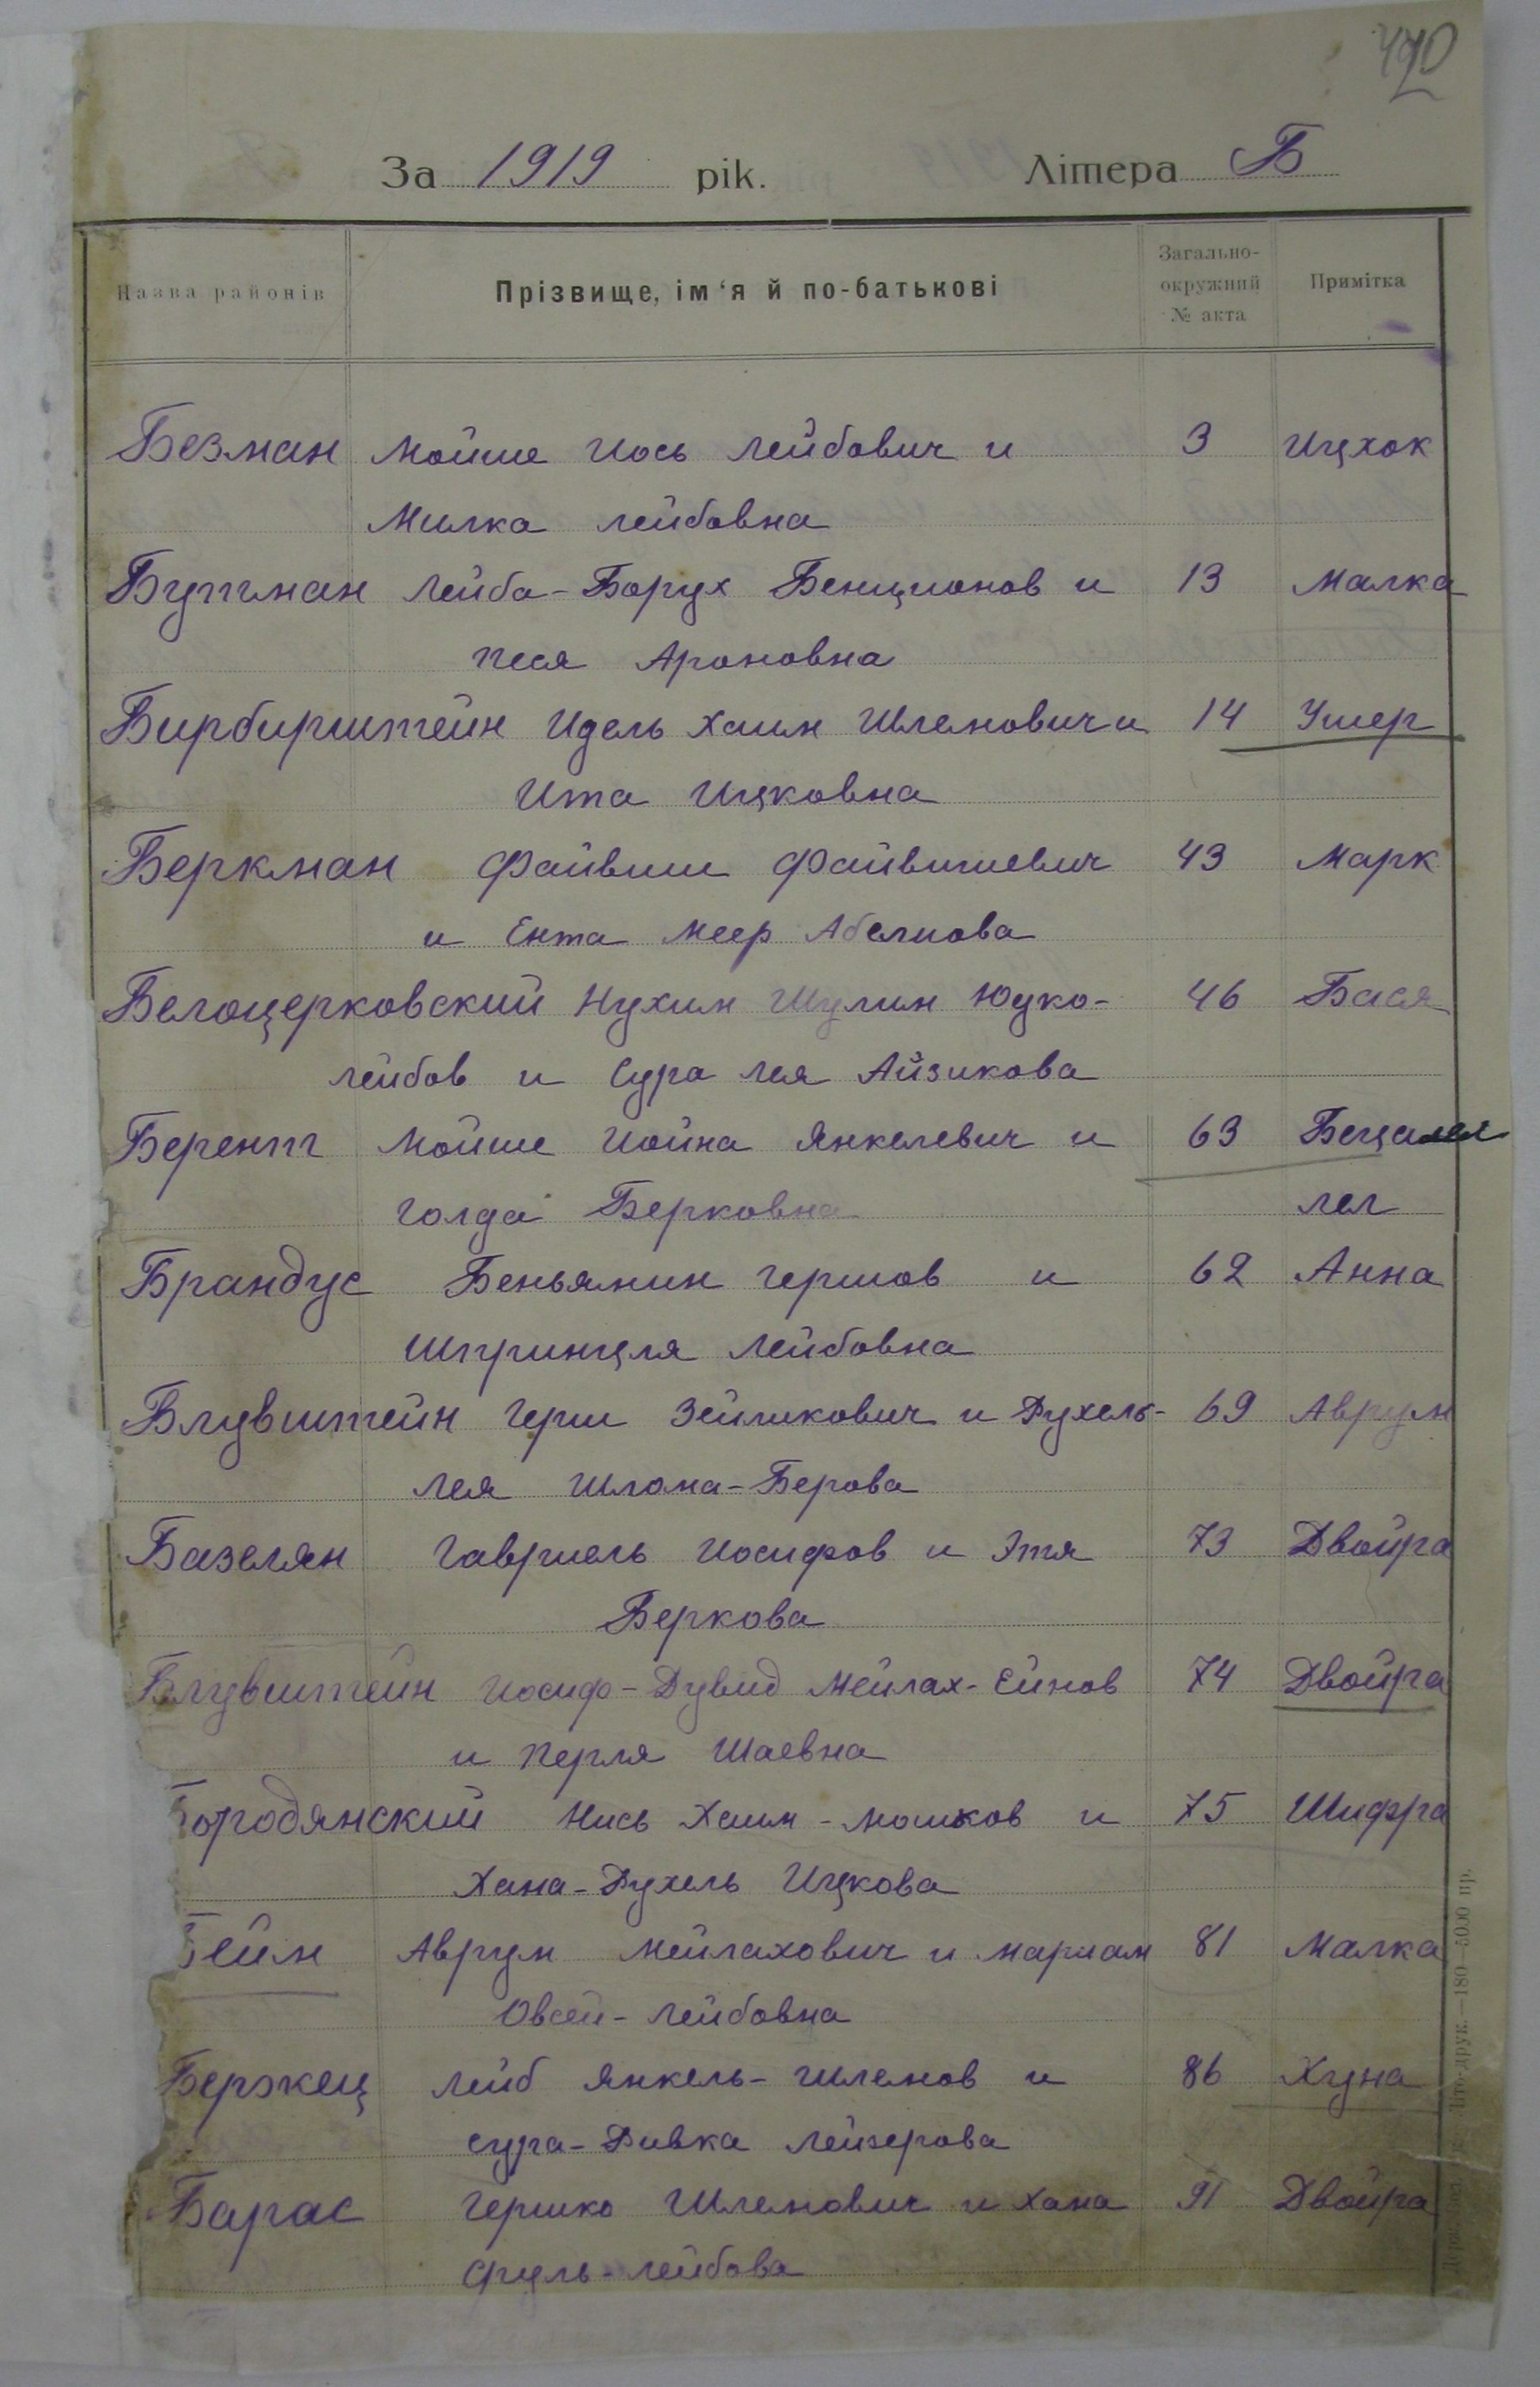 420
За 1919 рік. Літера Б
Назва районів Прізвище, ім'я й по-батькові Загально-окружний № акта Примітка
Безман Мойше Иось Лейбович и 3 Ицхок
Милка Лейбовна
Бутман Лейба-Борух Бенционов и 13 Малка
Песя Ароновна
Бирбирштейн Идель Хаим Шлемович и 14 Ушер
Ита Ицковна
Беркман Файвиш Файвишевич 43 Марк
и Ента Меер Абелиова
Белоцерковский Нухим Шулим Юдко- 46 Бася
лейбов и Сура Лея Айзикова
Берент Мойше Иойна Янкелевич и 63 Бецалел
Голда Берковна лел
Брандус Беньямин Гершов и 62 Анна
Шпринцля Лейбовна
Блувштейн Герш Зейликович и Рухель- 69 Аврум
Лея Шлома-Берова
Базелян Гавриель Иосифов и Этя 73 Двойра
Беркова
Блувштейн Иосиф-Дувид Мейлах-Ейнов 74 Двойра
и Перля Шаевна
Бородянский Нись Хаим-Мошков и 75 Шифра
Хана-Рухель Ицкова
Бейм Аврум Мейлахович и Мариам 81 Малка
Овсей-Лейбовна
Бержец Лейб Янкель-Шлемов и 86 Хуна
Сура-Ривка Лейзерова
Барас Гершко Шлемович и Хана 91 Двойра
Сруль-Лейбова